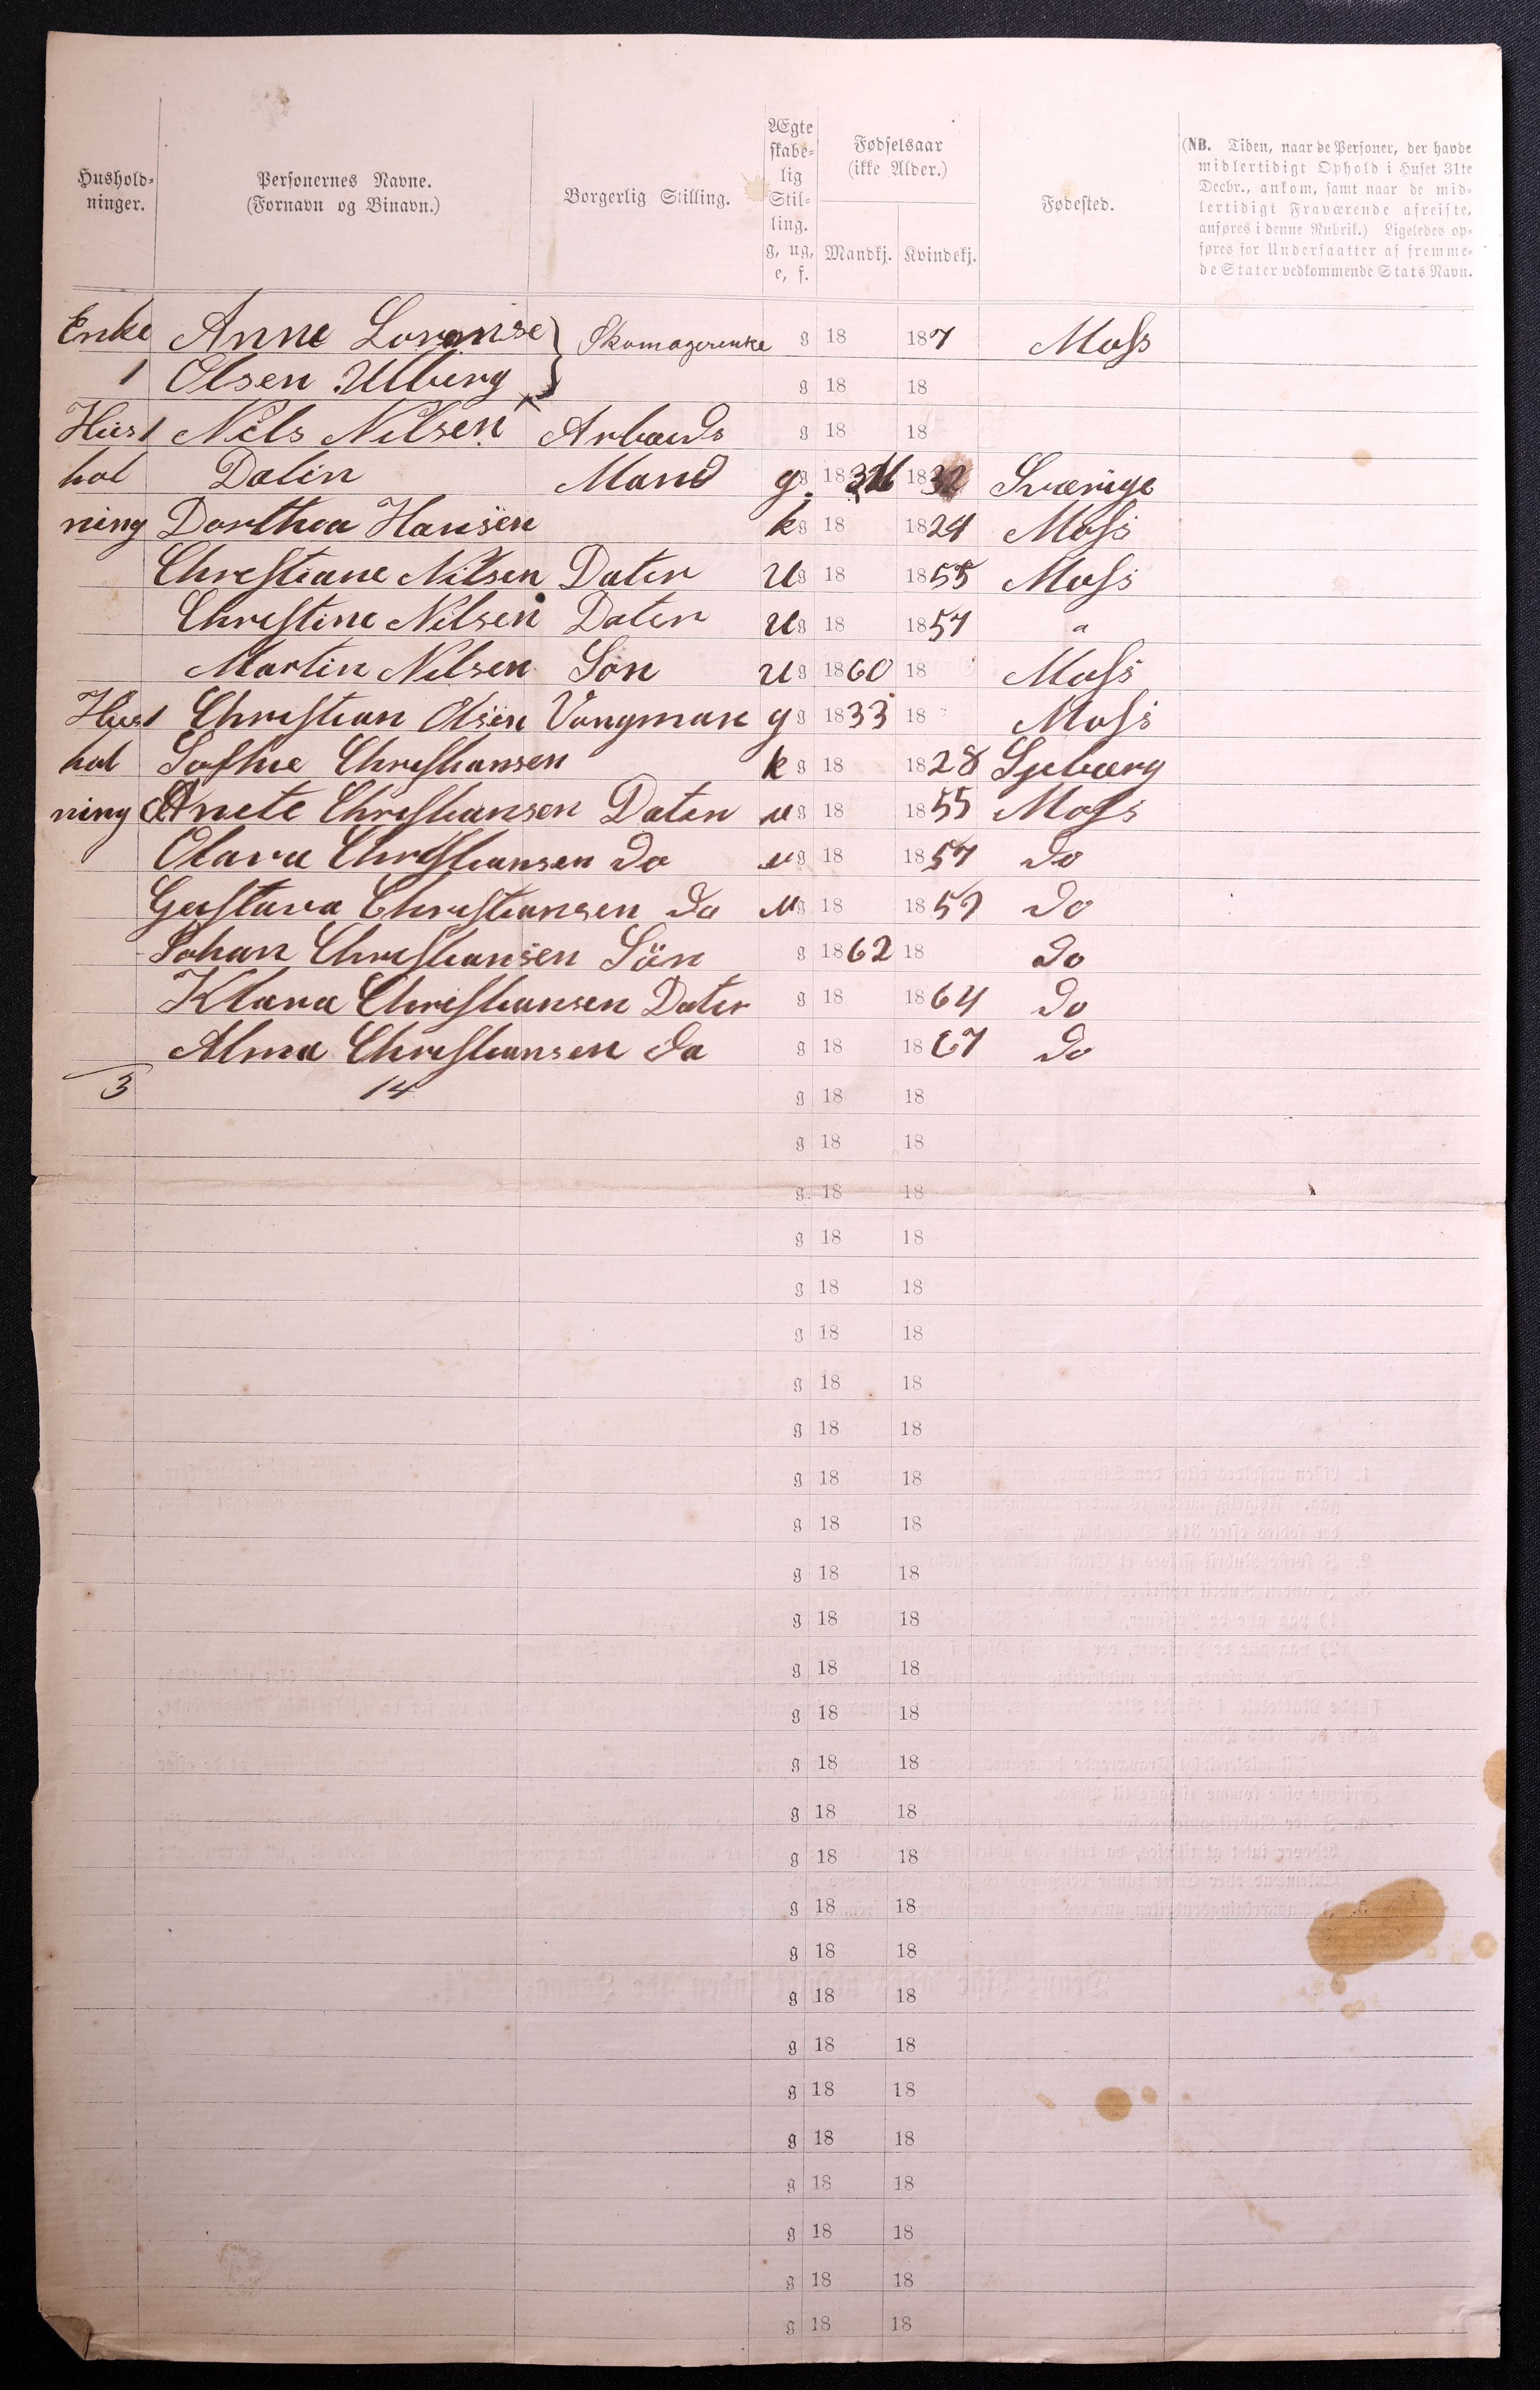 Hushold-
ninger.
Personernes Navne.
(Fornavn og Binavn.)
Borgerlig Stilling.
Ægte
skabe-
lig
Stil-
ling.
g, ug,
e, f.
Fødselsaar
(ikke Alder.)
Mandkj. Kvindekj.
Fødested.
(NB. Tiden, naar de Personer, der havde
midlertidigt Ophold i Huset 31te
Decbr., ankom, samt naar de mid-
lertidigt Fraværende afreiste,
anføres i denne Rubrik.) Ligeledes op-
føres for Undersaatter af fremme-
de Stater vedkommende Stats Navn.
Enke Anne Lovmise } Skomagerenke g 18 187 Moss
1 Olsen Ulberg g 18 18
Hus 1 Nils Nilsen Arbaids g 18 18
hol Dalin Mand g. g 18 1832 Sværige
ning Dorthea Hansen k g 18 1824 Moss
Christiane Nilsen Dater U g 18 1855 Moss
Christine Nilsen Dater U g 18 1857 "
Martin Nilsen Son U g 1860 18 Moss
Hus 1 Christian Olsen Vongman g g 1833 18 Moss
hol Sofhie Christiansen k g 18 1828 Sjebærg
ning Anete Christiansen Dater u g 18 1855 Moss
Olava Christiansen do u g 18 1857 do
Gustava Christiansen do u g 18 1859 do
Johan Christiansen Sön g 1862 18 do
Klara Christiansen Dater g 18 1864 do
Alma Christiansen do g 18 1867 do
3 14 g 18 18
g 18 18
g 18 18
g 18 18
g 18 18
g 18 18
g 18 18
g 18 18
g 18 18
g 18 18
g 18 18
g 18 18
g 18 18
g 18 18
g 18 18
g 18 18
g 18 18
g 18 18
g 18 18
g 18 18
g 18 18
g 18 18
g 18 18
g 18 18
g 18 18
g 18 18
g 18 18